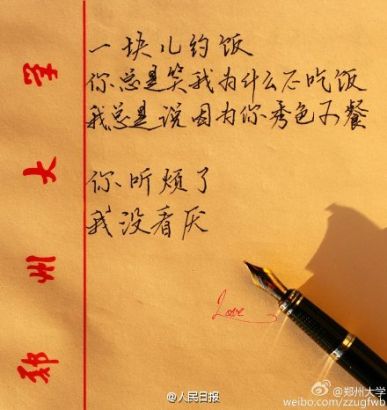 郑州大学
一块儿约饭
你总是笑我为什么不吃饭
我总是说因为你秀色可餐
你听烦了
我没看厌
Love
@人民日报
@郑州大学
weibo.com/zzugfwb